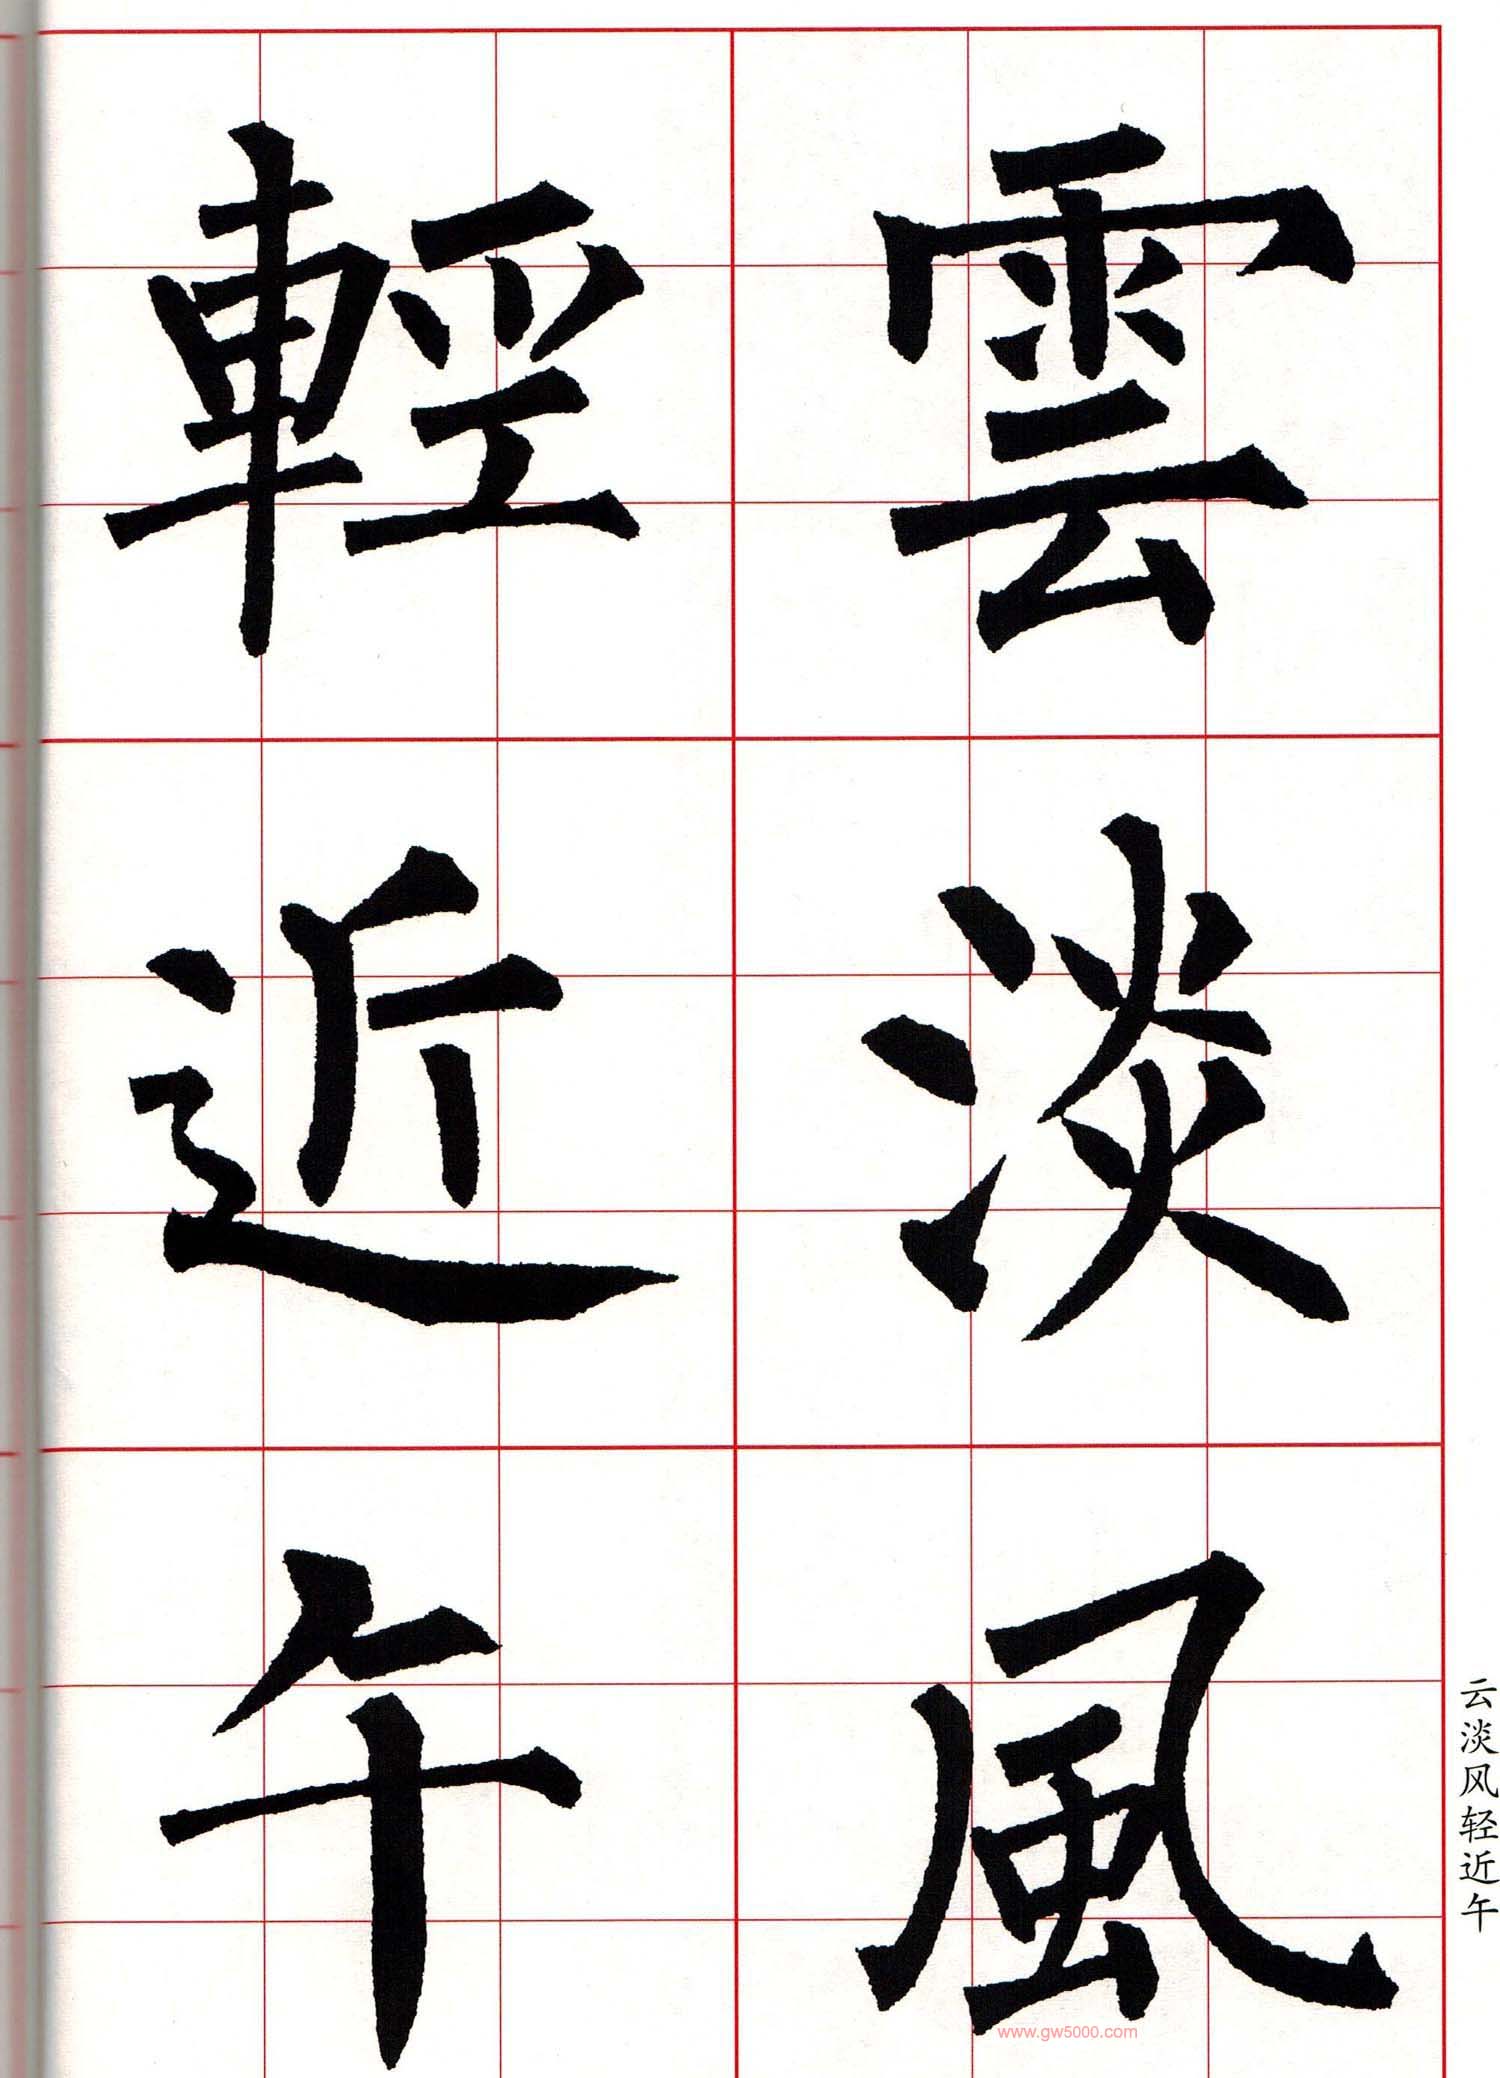 雲淡風
輕近午
云淡风轻近午
www.gw5000.com